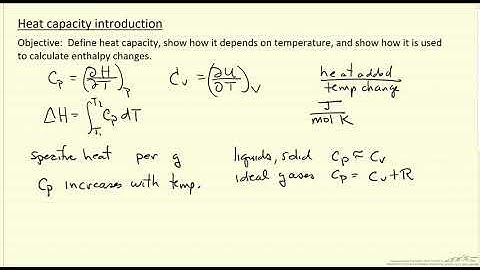 Heat capacity introduction
Objective: Define heat capacity, show how it depends on temperature, and show how it is used
to calculate enthalpy changes.
C_P = (∂H/∂T)_P   C_V = (∂U/∂T)_V   heat added / temp change
ΔH = ∫_{T₁}^{T₂} C_P dT   J / mol K
specific heat per g   liquids, solid C_P ≈ C_V
C_P increases with temp.   ideal gases C_P = C_V + R